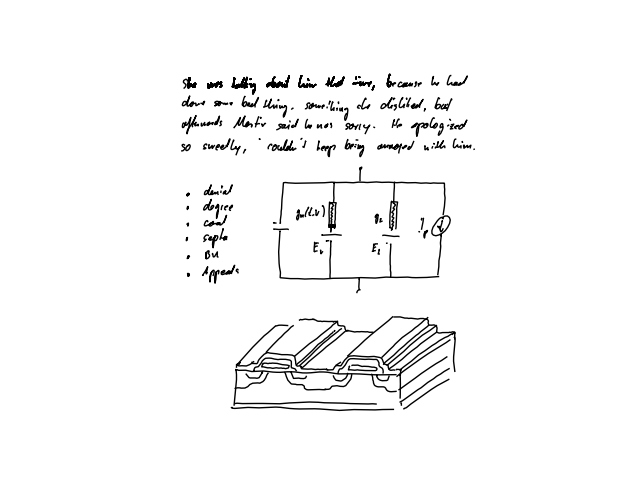 She was talking about him that time, because he had
done some bad thing, something she disliked, but
afterwards Martin said he was sorry. He apologized
so sweetly, I couldn't keep being annoyed with him.
denial
degree
coal
BM
Appeals
E₁